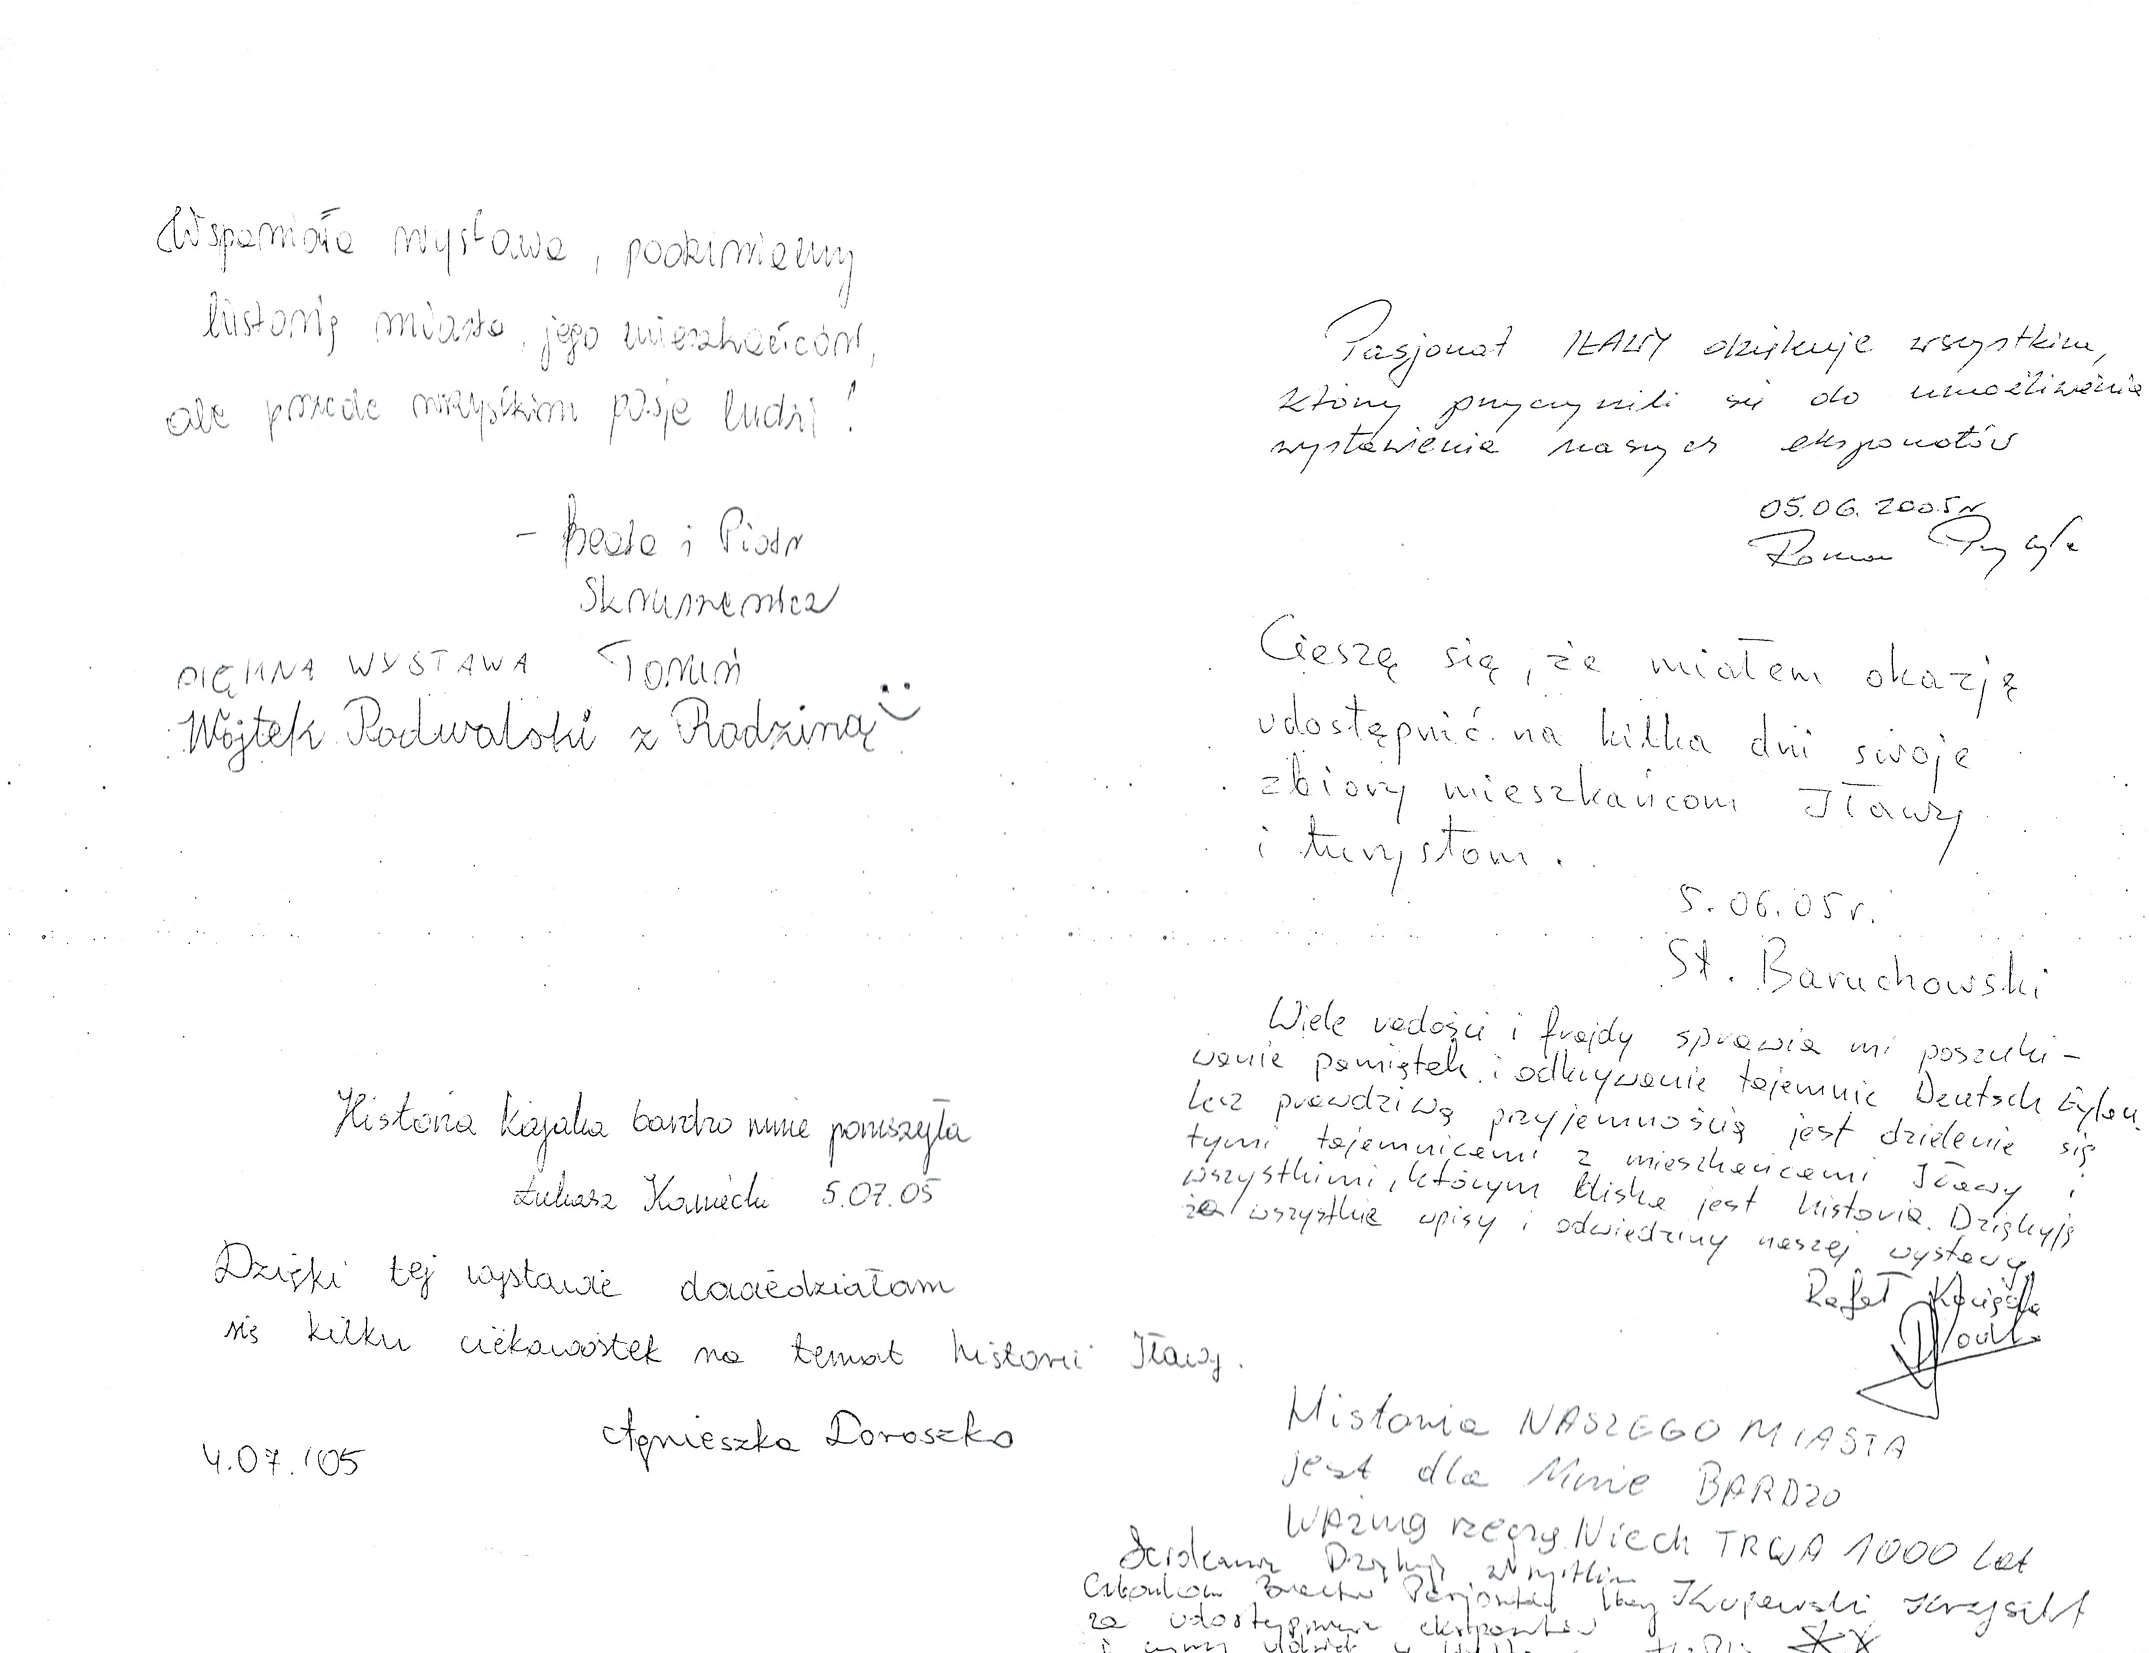 Wspaniała wystawa, podziwiamy
historię miasta, jego mieszkańców,
ale przede wszystkim pasję ludzi!
- Beata i Piotr
Skruszewicz
Toruń
PIĘKNA WYSTAWA
Wojtek Radwalski z Rodziną
Historia Kajaka bardzo mnie poruszyła
Łukasz Kamiecki 5.07.05
Dzięki tej wystawie dowiedziałam
się kilku ciekawostek na temat historii Iławy.
Agnieszka Doroszko
4.07.'05
Pasjonat IŁAWY dziękuje wszystkim,
którzy przyczynili się do umożliwienia
wystawienia naszych eksponatów
05.06.2005r
Roman
Cieszę się, że miałem okazję
udostępnić na kilka dni swoje
zbiory mieszkańcom Iławy
i turystom.
5.06.05r.
St. Baruchowski
Wiele radości i frajdy sprawia mi poszuki-
wanie pamiątek i odkrywanie tajemnic Deutsch Eylau,
lecz prawdziwą przyjemnością jest dzielenie się
tymi tajemnicami z mieszkańcami Iławy i
wszystkimi, którym bliska jest historia. Dziękuję
za wszystkie wpisy i odwiedziny naszej wystawy
Rafał
Historia NASZEGO MIASTA
jest dla Mnie BARDZO
WAŻNĄ rzeczą. Niech TRWA 1000 Lat
Kujewski Krzysztof
Serdecznie Dziękuję wszystkim
Członkom Bractwa Pasjonatów Iławy
za udostępnienie eksponatów